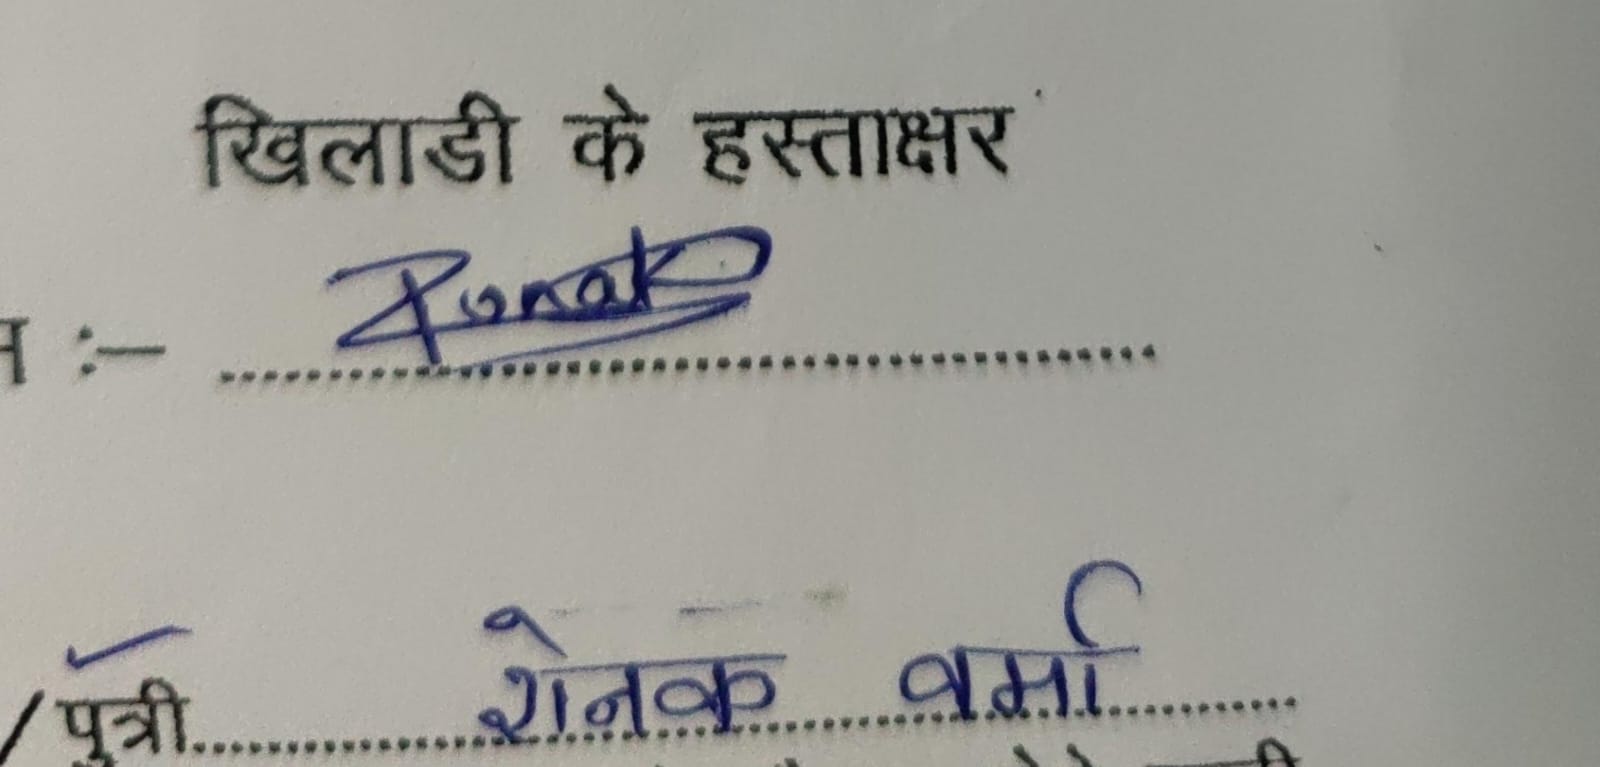 खिलाडी के हस्ताक्षर
:- Ronak
/ पुत्री रोनक वर्मा